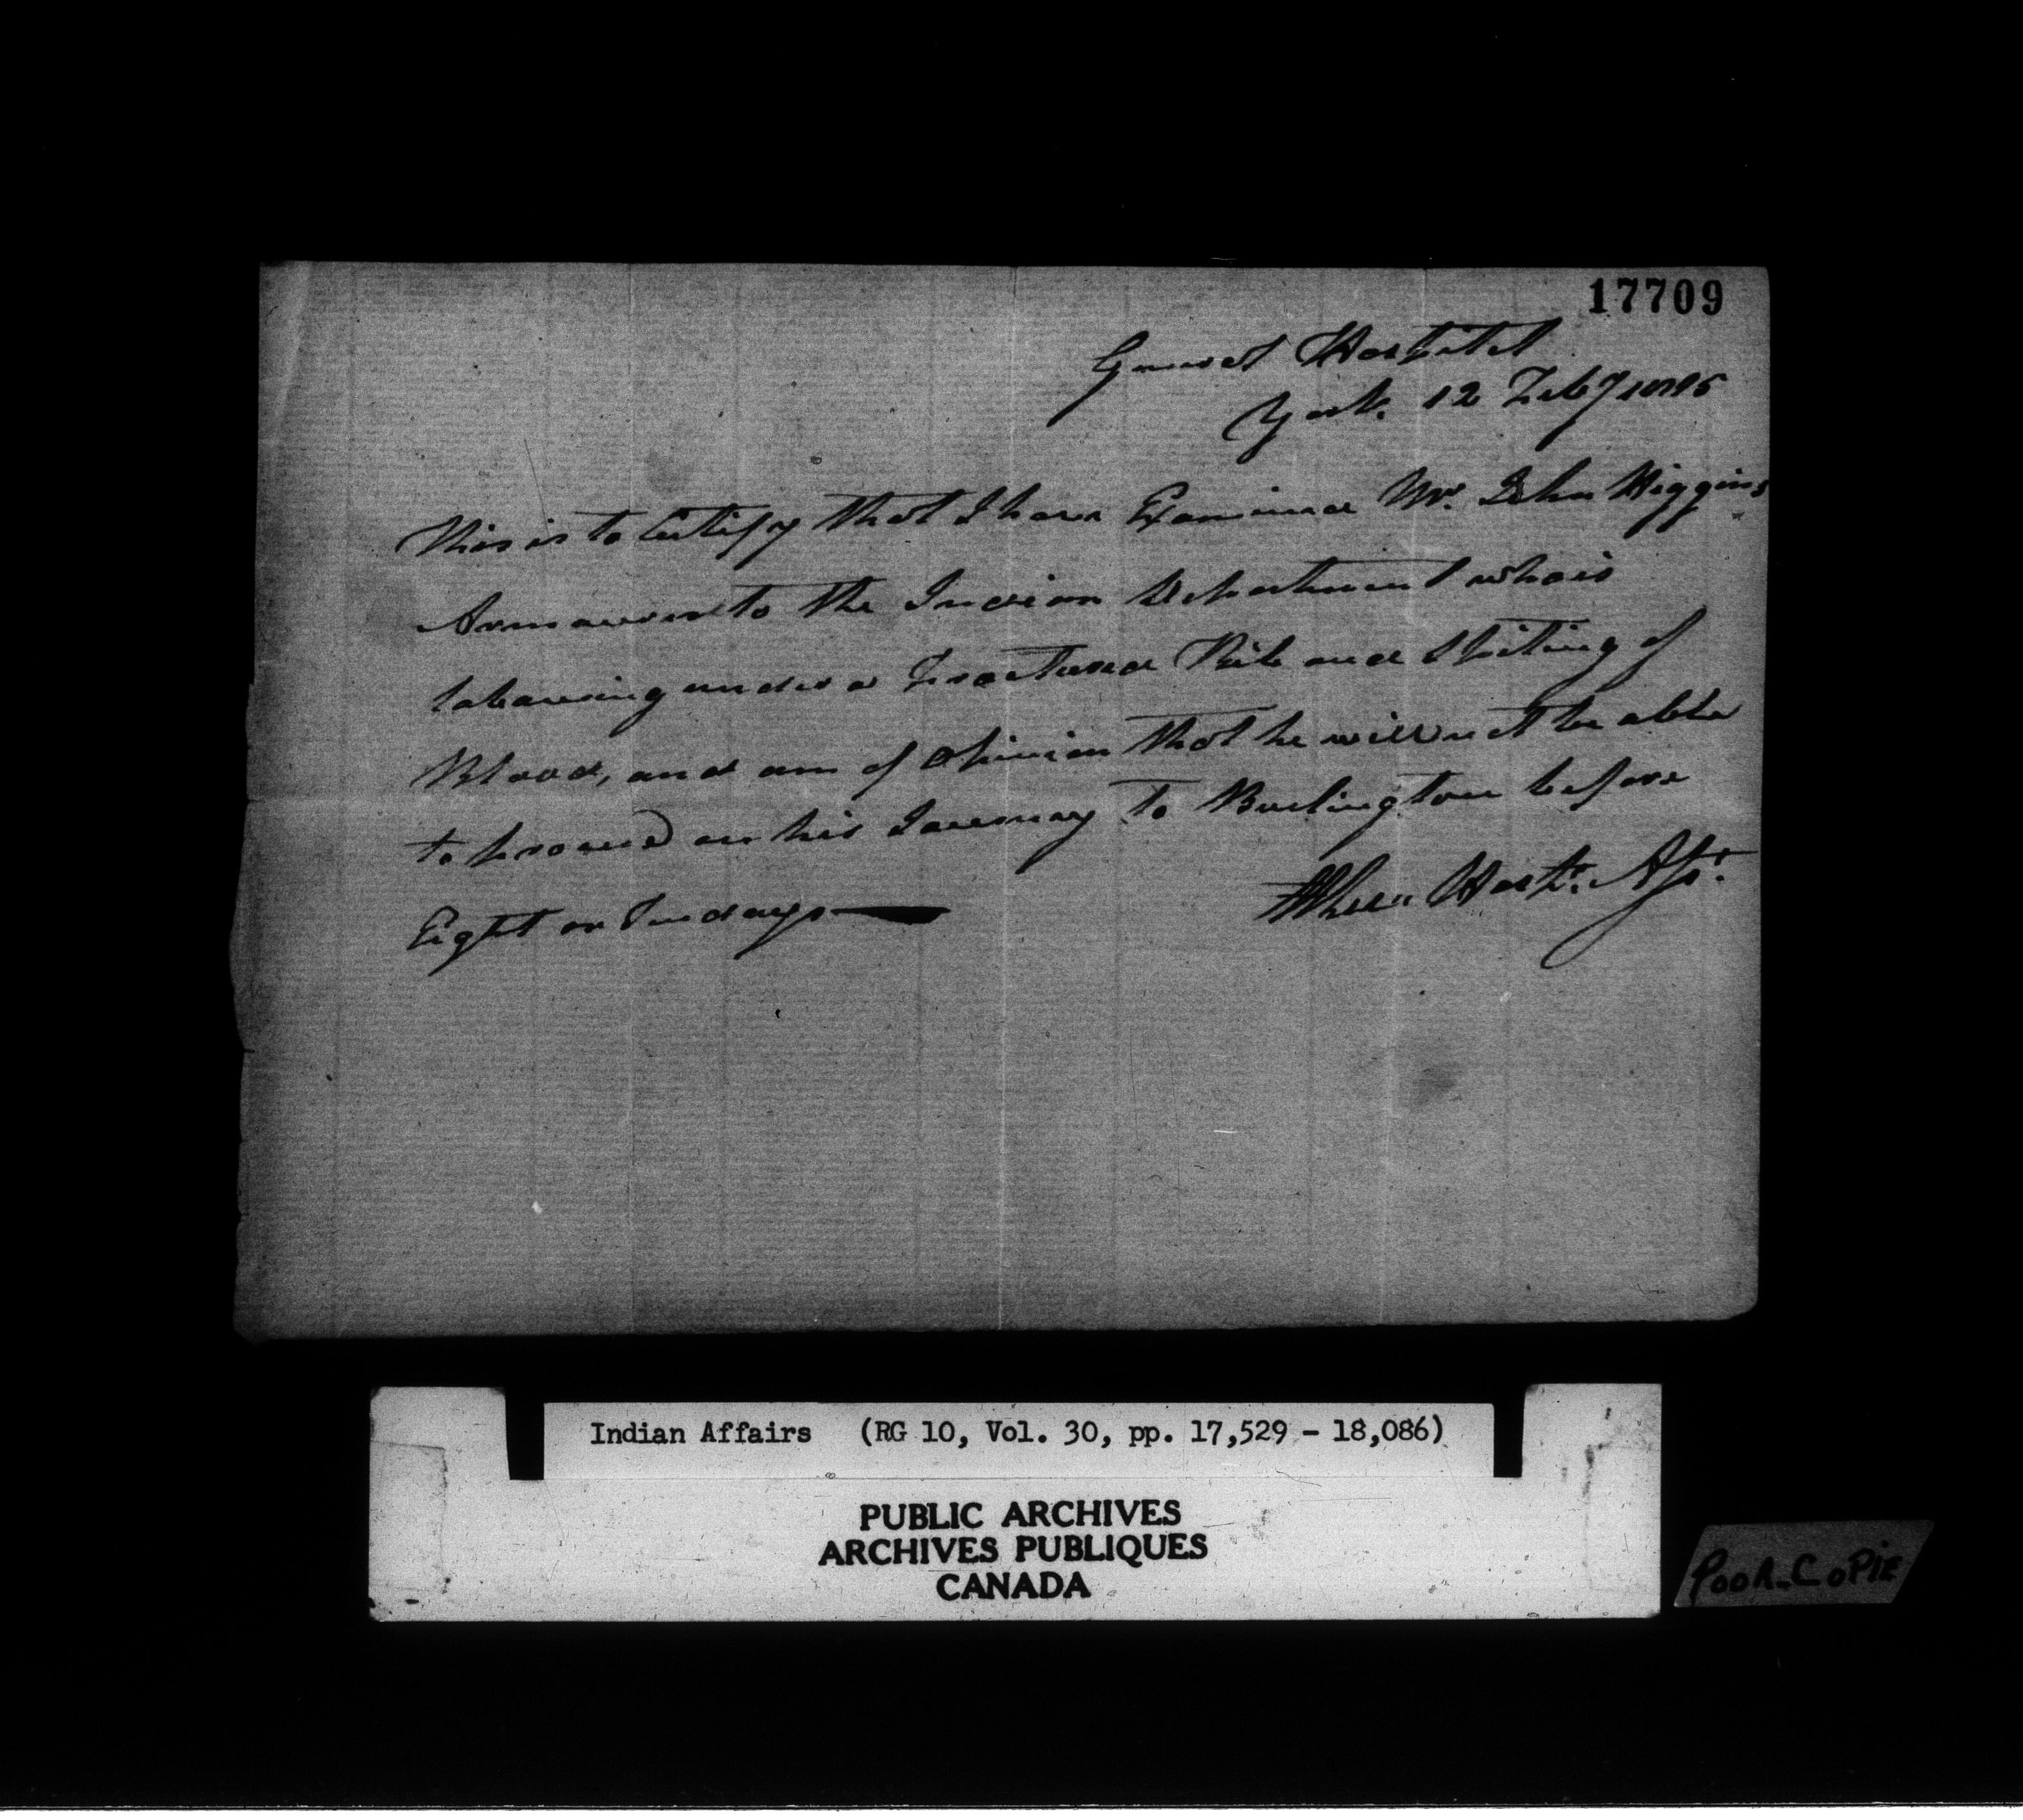 17709
General Hospital
York 12 Feby 1815
This is to Certify that I have Examined Mr. John Higgins
Armourer to the Indian Department who is
labouring under a Fractured Rib and Spiting of
Blood, and am of Opinion that he will not be able
to proceed on his Journey to Burlington before
Eight or Ten days
Hospl. Asst.
Indian Affairs (RG 10, Vol. 30, pp. 17,529 - 18,086)
PUBLIC ARCHIVES
ARCHIVES PUBLIQUES
CANADA
POOR COPIE